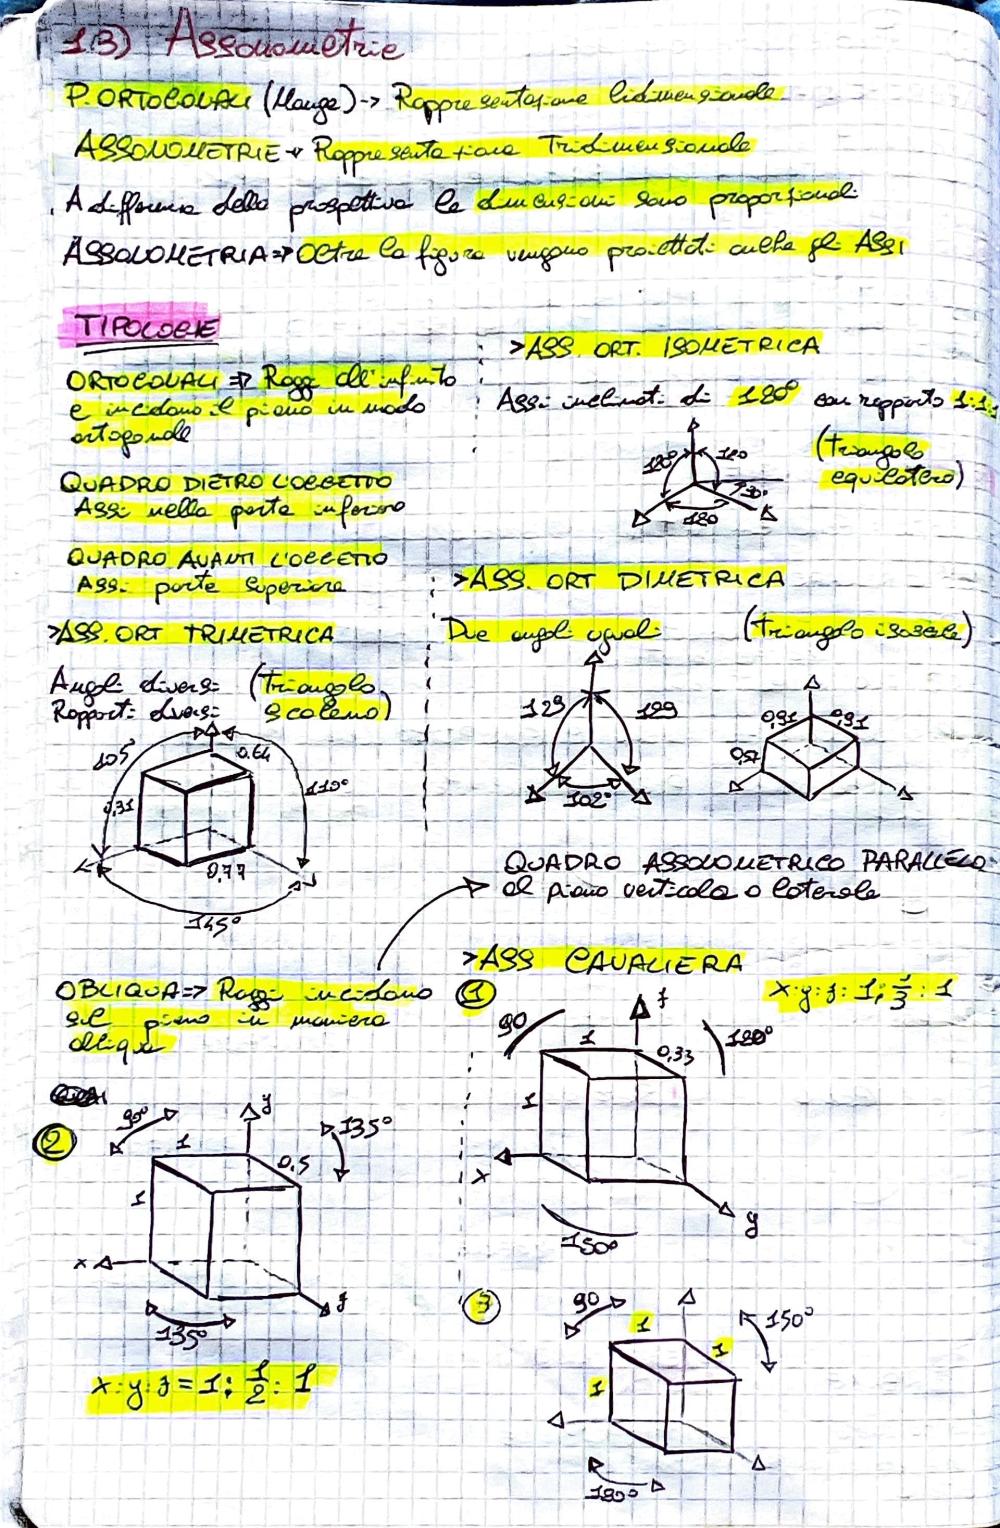 13) Assonometrie
P. ORTOGONALI (Monge) -> Rappresentazione bidimensionale
ASSONOMETRIE -> Rappresentazione Tridimensionale
A differenza della prospettiva le dimensioni sono proporzionali
ASSONOMETRIA => Oltre la figura vengono proiettati anche gli ASSI
TIPOLOGIE
ORTOGONALI => Raggi all'infinito
e incidono il piano in modo
ortogonale
QUADRO DIETRO L'OGGETTO
Assi nella parte inferiore
QUADRO AVANTI L'OGGETTO
Assi parte superiore
>ASS. ORT. ISOMETRICA
Assi inclinati di 120° con rapporto 1:1:1
(triangolo
equilatero)
120° 120
30°
120
>ASS. ORT TRIMETRICA
Angoli diversi (triangolo
Rapporti diversi scaleno)
105° 0.64
110°
0,31
0,77
145°
>ASS. ORT DIMETRICA
Due angoli uguali (triangolo isoscele)
129 129
102°
0,91 0,91
QUADRO ASSONOMETRICO PARALLELO
al piano verticale o laterale
OBLIQUA => Raggi incidono
sul piano in maniera
obliqua
>ASS CAVALIERA
1 x:y:z: 1:1/3:1
90 z 120°
1 0,33
1
x
y
150°
2
90° y 135°
1 0.5
1
x z
135°
x:y:z = 1:1/2:1
3
90 150°
1 1
1
120°